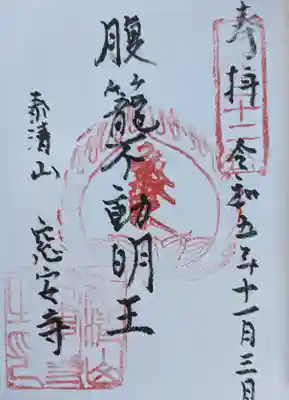 奉拝 令和五年十一月三日
腹籠不動明王
泰清山 窓安寺